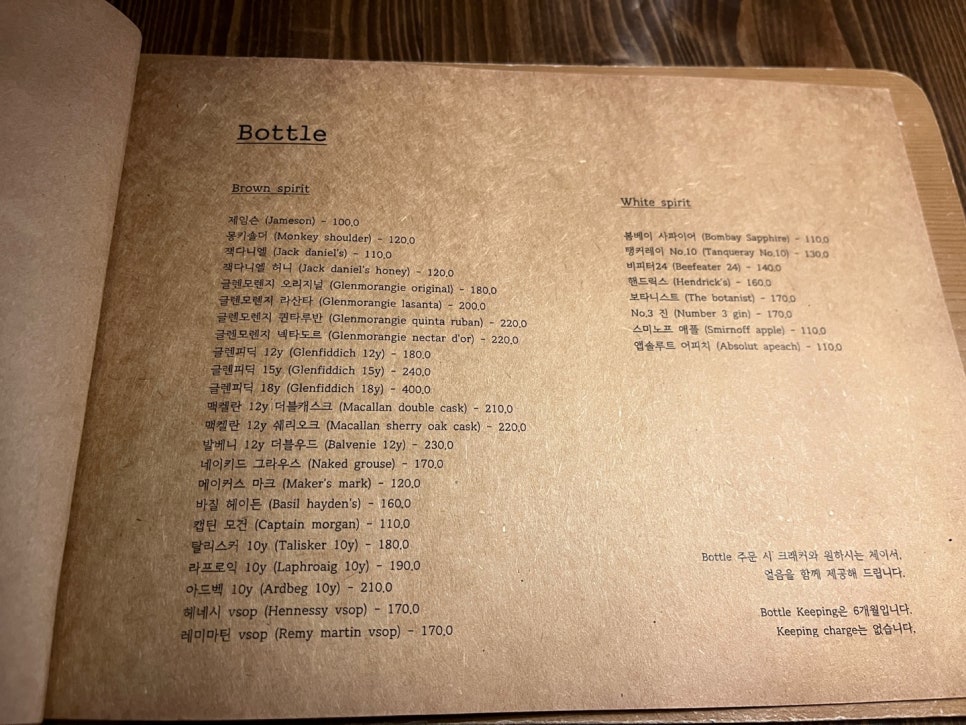 Bottle
Brown spirit
제임슨 (Jameson) - 100.0
몽키숄더 (Monkey shoulder) - 120.0
잭다니엘 (Jack daniel's) - 110.0
잭다니엘 허니 (Jack daniel's honey) - 120.0
글렌모렌지 오리지널 (Glenmorangie original) - 180.0
글렌모렌지 라산타 (Glenmorangie lasanta) - 200.0
글렌모렌지 퀸타루반 (Glenmorangie quinta ruban) - 220.0
글렌모렌지 넥타도르 (Glenmorangie nectar d'or) - 220.0
글렌피딕 12y (Glenfiddich 12y) - 180.0
글렌피딕 15y (Glenfiddich 15y) - 240.0
글렌피딕 18y (Glenfiddich 18y) - 400.0
맥켈란 12y 더블캐스크 (Macallan double cask) - 210.0
맥켈란 12y 쉐리오크 (Macallan sherry oak cask) - 220.0
발베니 12y 더블우드 (Balvenie 12y) - 230.0
네이키드 그라우스 (Naked grouse) - 170.0
메이커스 마크 (Maker's mark) - 120.0
바질 헤이든 (Basil hayden's) - 160.0
캡틴 모건 (Captain morgan) - 110.0
탈리스커 10y (Talisker 10y) - 180.0
라프로익 10y (Laphroaig 10y) - 190.0
아드벡 10y (Ardbeg 10y) - 210.0
헤네시 vsop (Hennessy vsop) - 170.0
레미마틴 vsop (Remy martin vsop) - 170.0
White spirit
봄베이 사파이어 (Bombay Sapphire) - 110.0
탱커레이 No.10 (Tanqueray No.10) - 130.0
비피터24 (Beefeater 24) - 140.0
핸드릭스 (Hendrick's) - 160.0
보타니스트 (The botanist) - 170.0
No.3 진 (Number 3 gin) - 170.0
스미노프 애플 (Smirnoff apple) - 110.0
앱솔루트 어피치 (Absolut apeach) - 110.0
Bottle 주문 시 크래커와 원하시는 체이서,
얼음을 함께 제공해 드립니다.
Bottle Keeping은 6개월입니다.
Keeping charge는 없습니다.